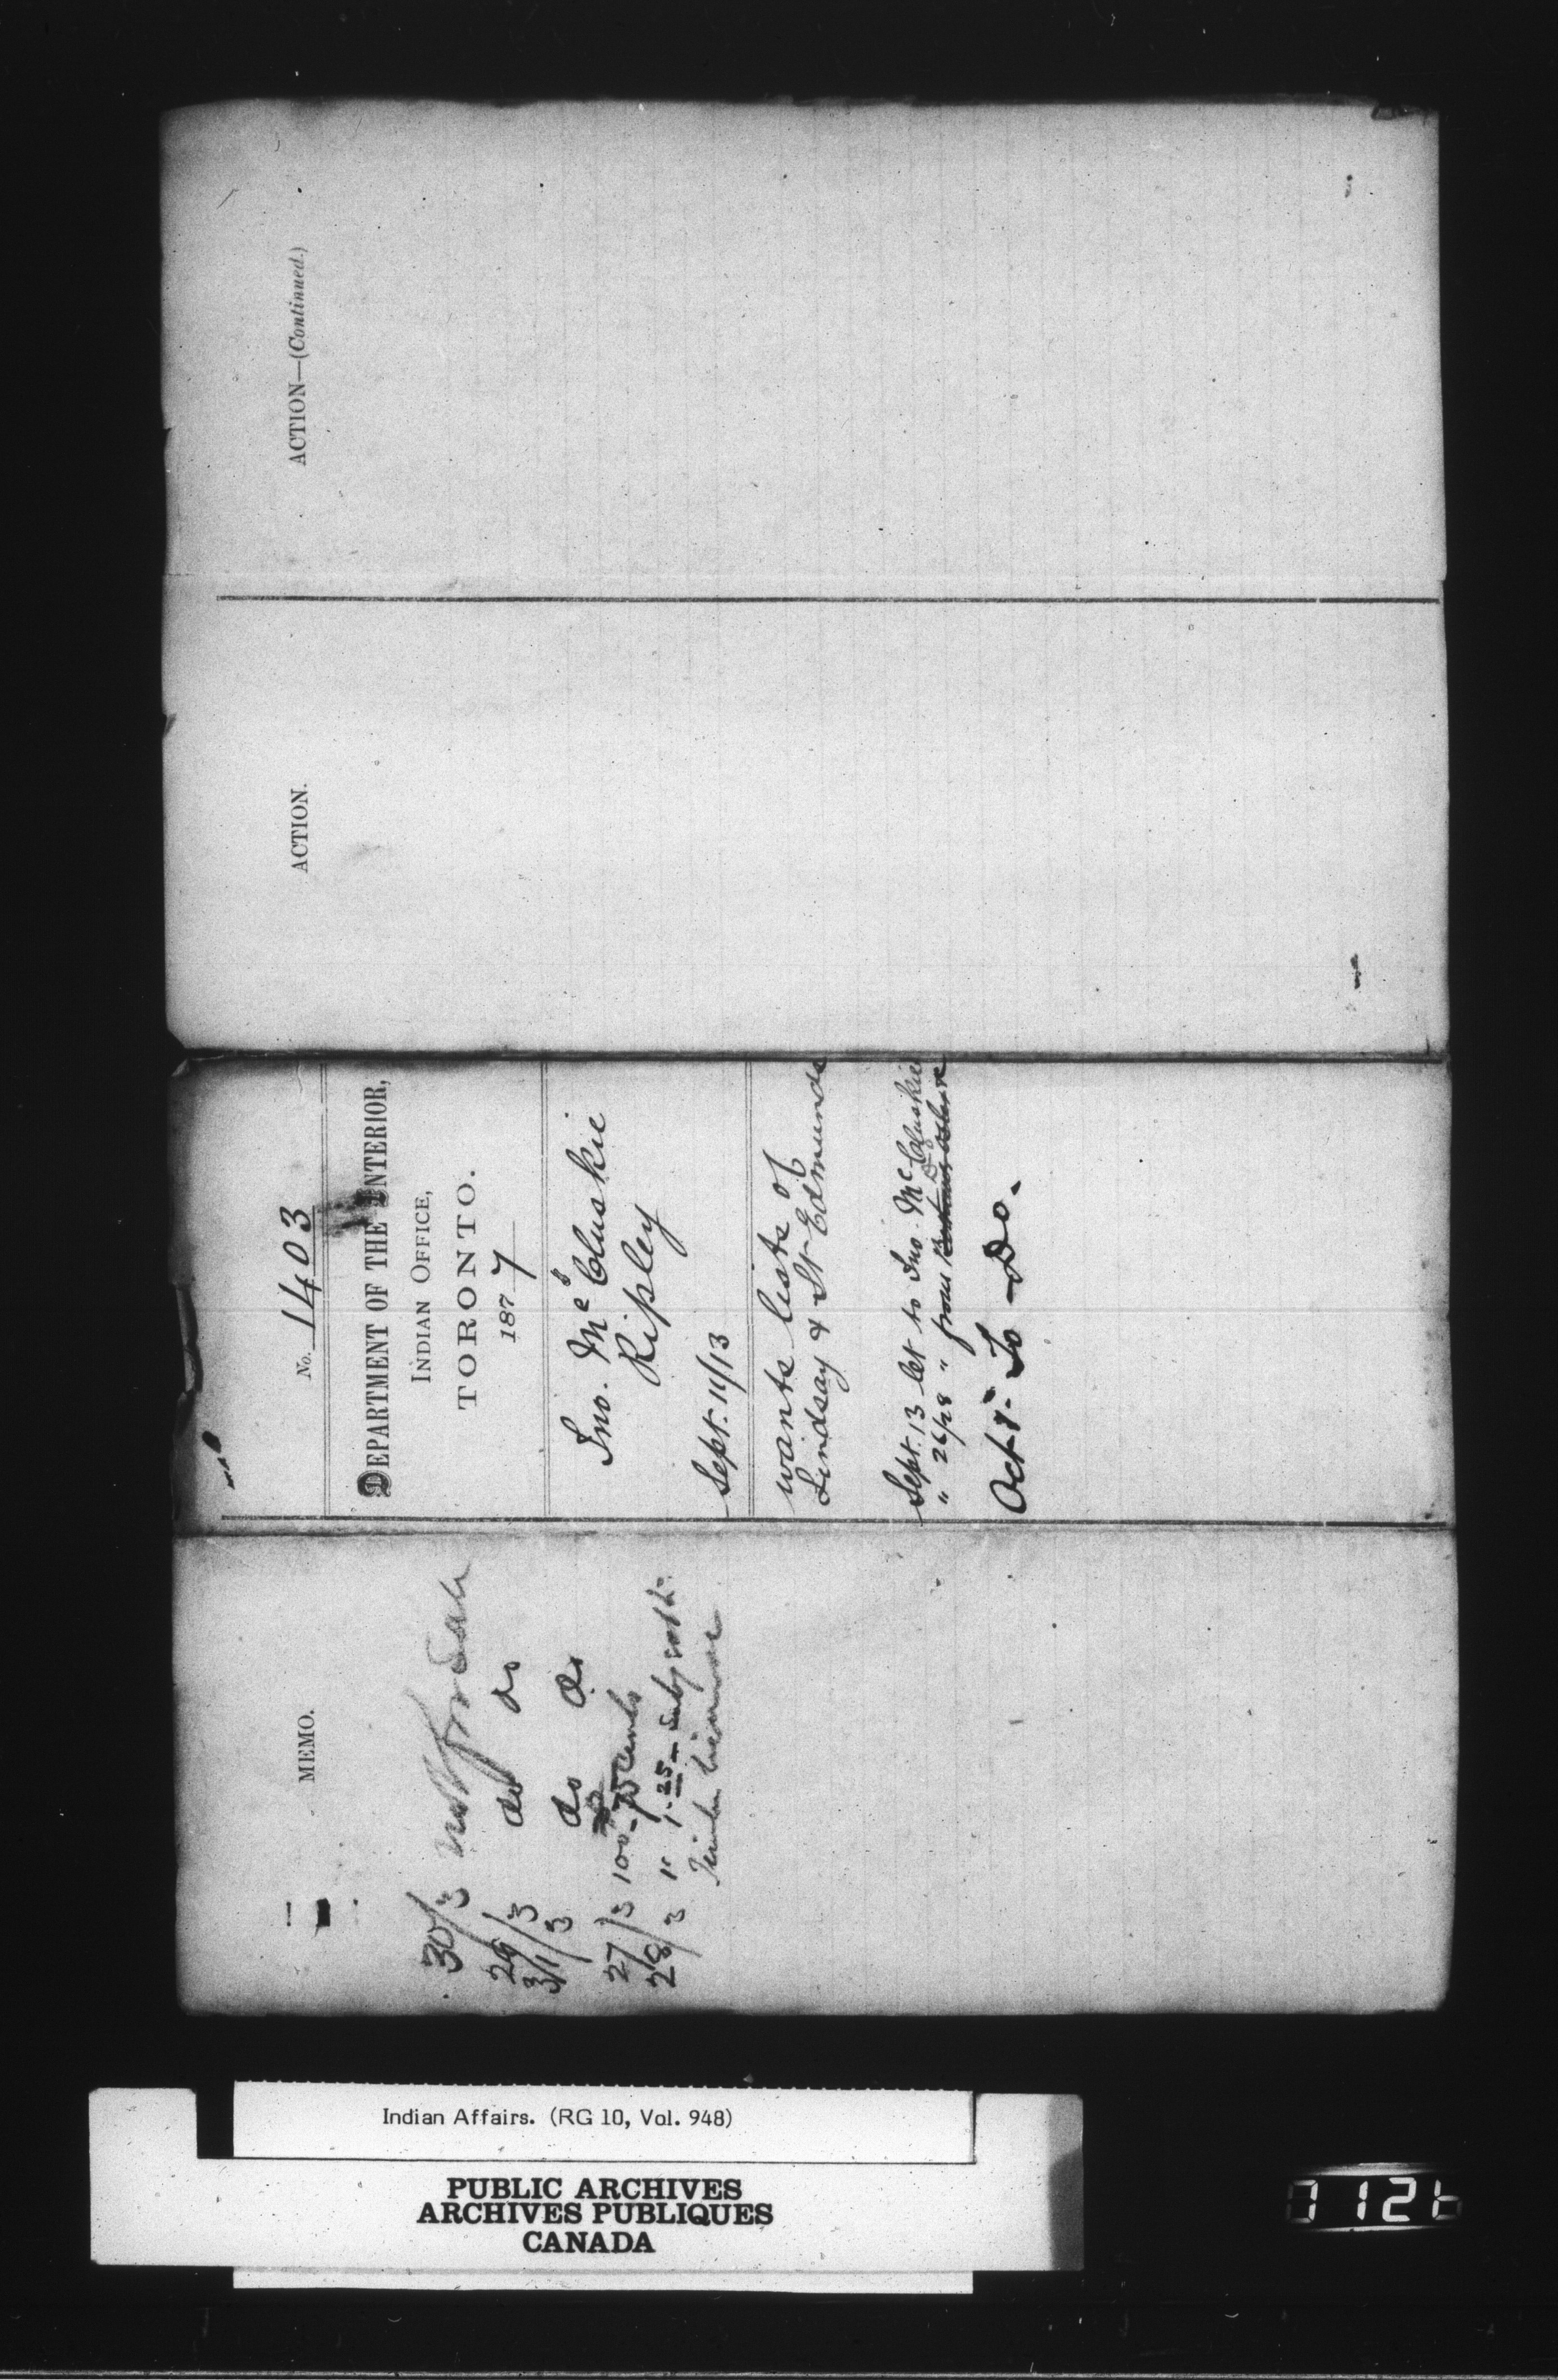 MEMO.
30/3 not for Sale
29/3 do do
31/3 do do
27/3 100 - 75 cents
28/3 " 1.25 - Subj. to
Timber license
No. 1403
DEPARTMENT OF THE INTERIOR,
INDIAN OFFICE,
TORONTO.
1877
Jno. McCluskie
Ripley
Sept. 11/13
wants lists of
Lindsay & St Edmunds
Sept. 13 let to Jno. McCluskie
" 26/28 " from
Oct 1. To Do.
ACTION.
ACTION—(Continued.)
Indian Affairs. (RG 10, Vol. 948)
PUBLIC ARCHIVES
ARCHIVES PUBLIQUES
CANADA